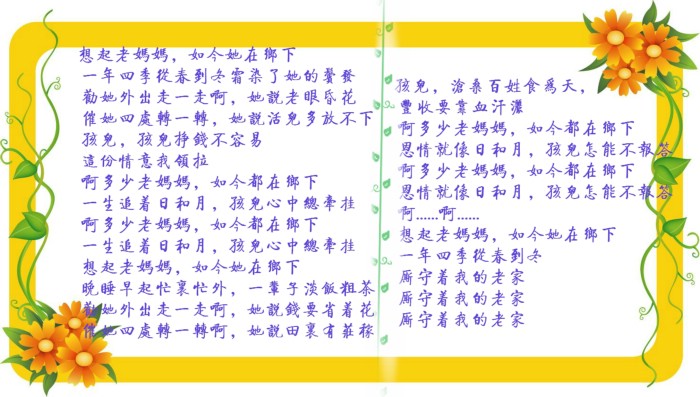 想起老媽媽，如今她在鄉下
一年四季從春到冬霜染了她的鬢發
勸她外出走一走啊，她說老眼昏花
催她四處轉一轉，她說活兒多放不下
孩兒，孩兒掙錢不容易
這份情意我領拉
啊多少老媽媽，如今都在鄉下
一生追着日和月，孩兒心中總牽挂
啊多少老媽媽，如今都在鄉下
一生追着日和月，孩兒心中總牽挂
想起老媽媽，如今她在鄉下
晚睡早起忙裏忙外，一輩子淡飯粗茶
勸她外出走一走啊，她說錢要省着花
催她四處轉一轉啊，她說田裏有莊稼
孩兒，滄桑百姓食爲天，
豐收要靠血汗灑
啊多少老媽媽，如今都在鄉下
恩情就像日和月，孩兒怎能不報答
啊多少老媽媽，如今都在鄉下
恩情就像日和月，孩兒怎能不報答
啊……啊……
想起老媽媽，如今她在鄉下
一年四季從春到冬
厮守着我的老家
厮守着我的老家
厮守着我的老家